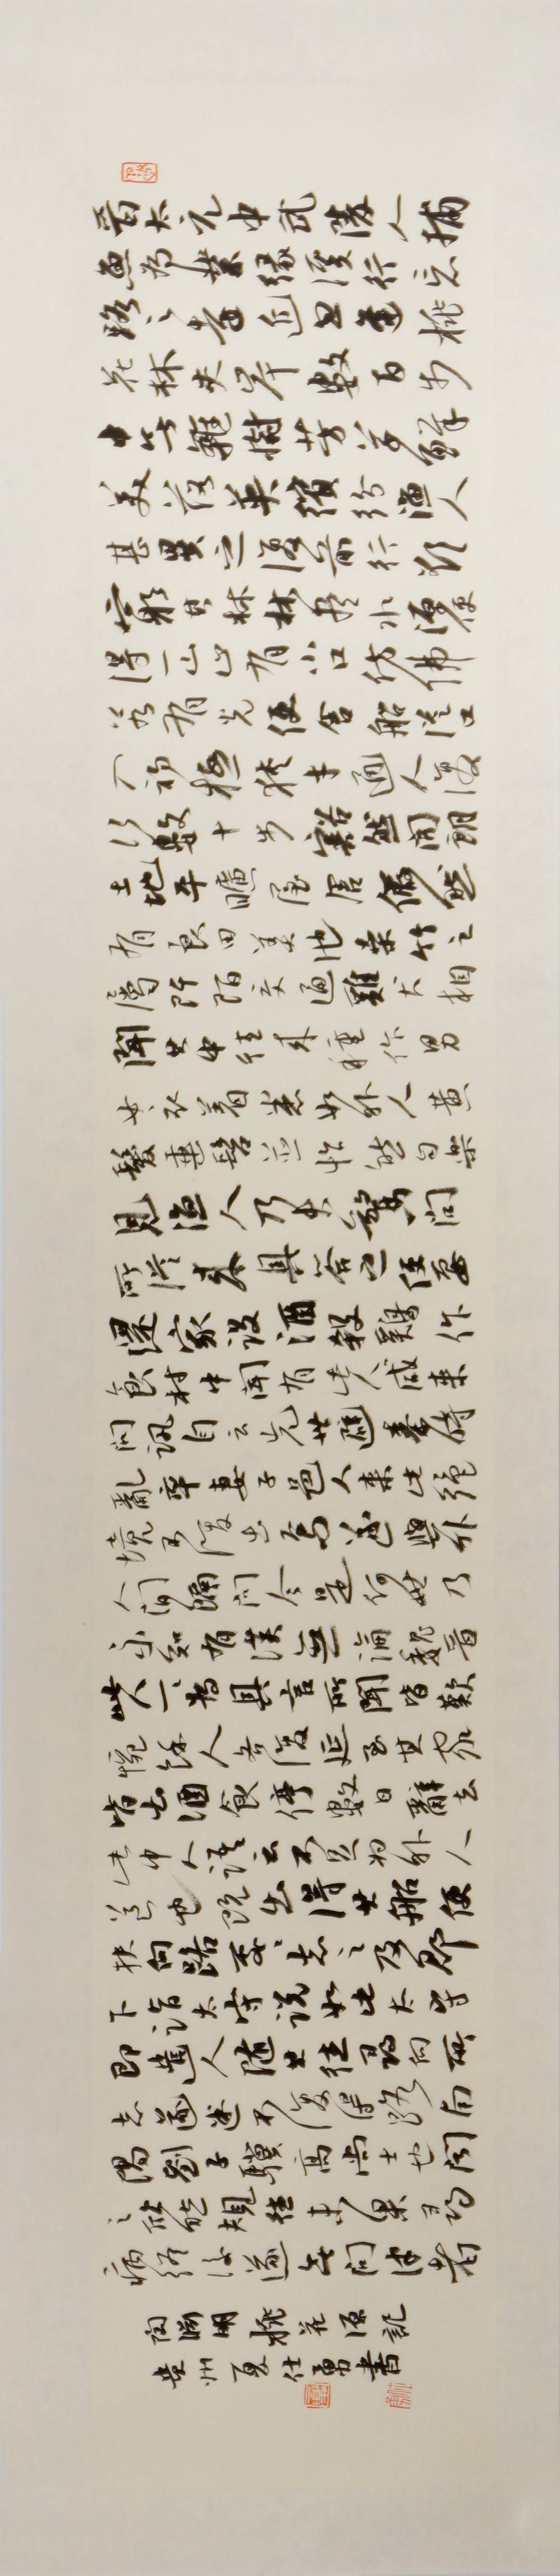 晉太元中武陵人捕
魚為業緣溪行忘
路之遠近忽逢桃
花林夾岸數百步
中無雜樹芳草鮮
美落英繽紛漁人
甚異之復前行欲
窮其林林盡水源便
得一山山有小口仿佛
若有光便舍船從口
入初極狹才通人復
行數十步豁然開朗
土地平曠屋居儼然
有良田美池桑竹之
屬阡陌交通雞犬相
聞其中往來種作男
女衣着悉如外人黃
髮垂髫並怡然自樂
見漁人乃大驚問
所從來具答之便要
還家設酒殺雞作
食村中聞有此人咸來
問訊自云先世避秦時
亂率妻子邑人來此絕
境不復出焉遂與外
人間隔問今是何世乃
不知有漢無論魏晉
此人一一為具言所聞皆歎
惋餘人各復延至其家
皆出酒食停數日辭去
此中人語云不足為外人
道也既出得其船便
扶向路處處志之及郡
下詣太守說如此太守
即遣人隨其往尋向所
志遂迷不復得路南
陽劉子驥高尚士也聞
之欣然規往未果尋
病終後遂無問津者
陶淵明桃花源記
貴州夏仕勇書